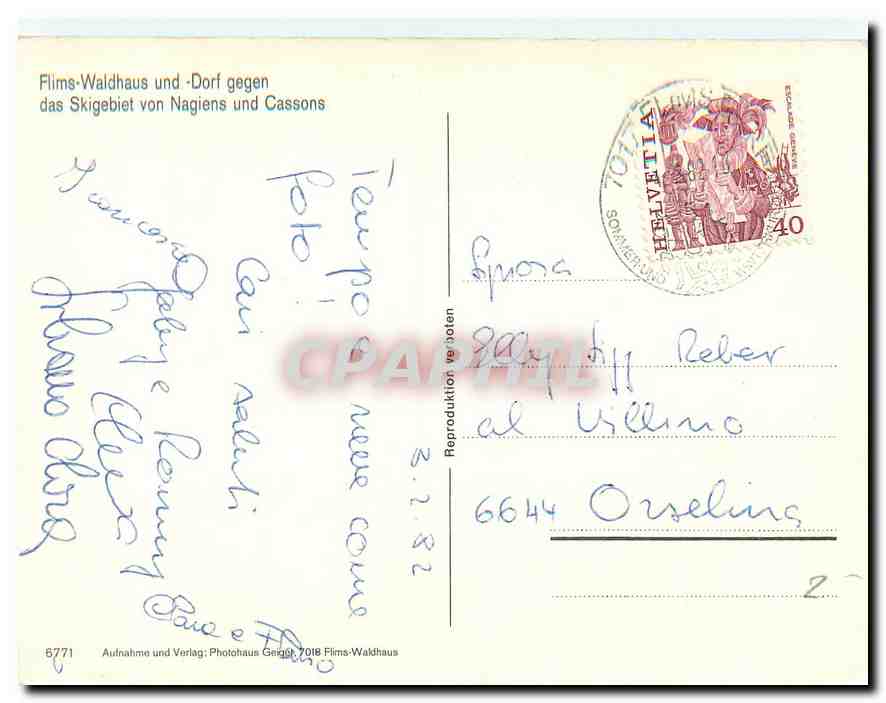 Flims-Waldhaus und -Dorf gegen
das Skigebiet von Nagiens und Cassons
3.2.82
Tempo e neve come
foto!
Cari saluti
Gaby e Romny
Sara e
Reproduktion verboten
7017 FLIMS
SOMMER- UND
HELVETIA
ESCALADE GENÈVE
40
Signora
Elly Sigg Reber
al Villino
6644 Orselina
2-
6771
Aufnahme und Verlag: Photohaus Geiger, 7018 Flims-Waldhaus
CPAPHIL